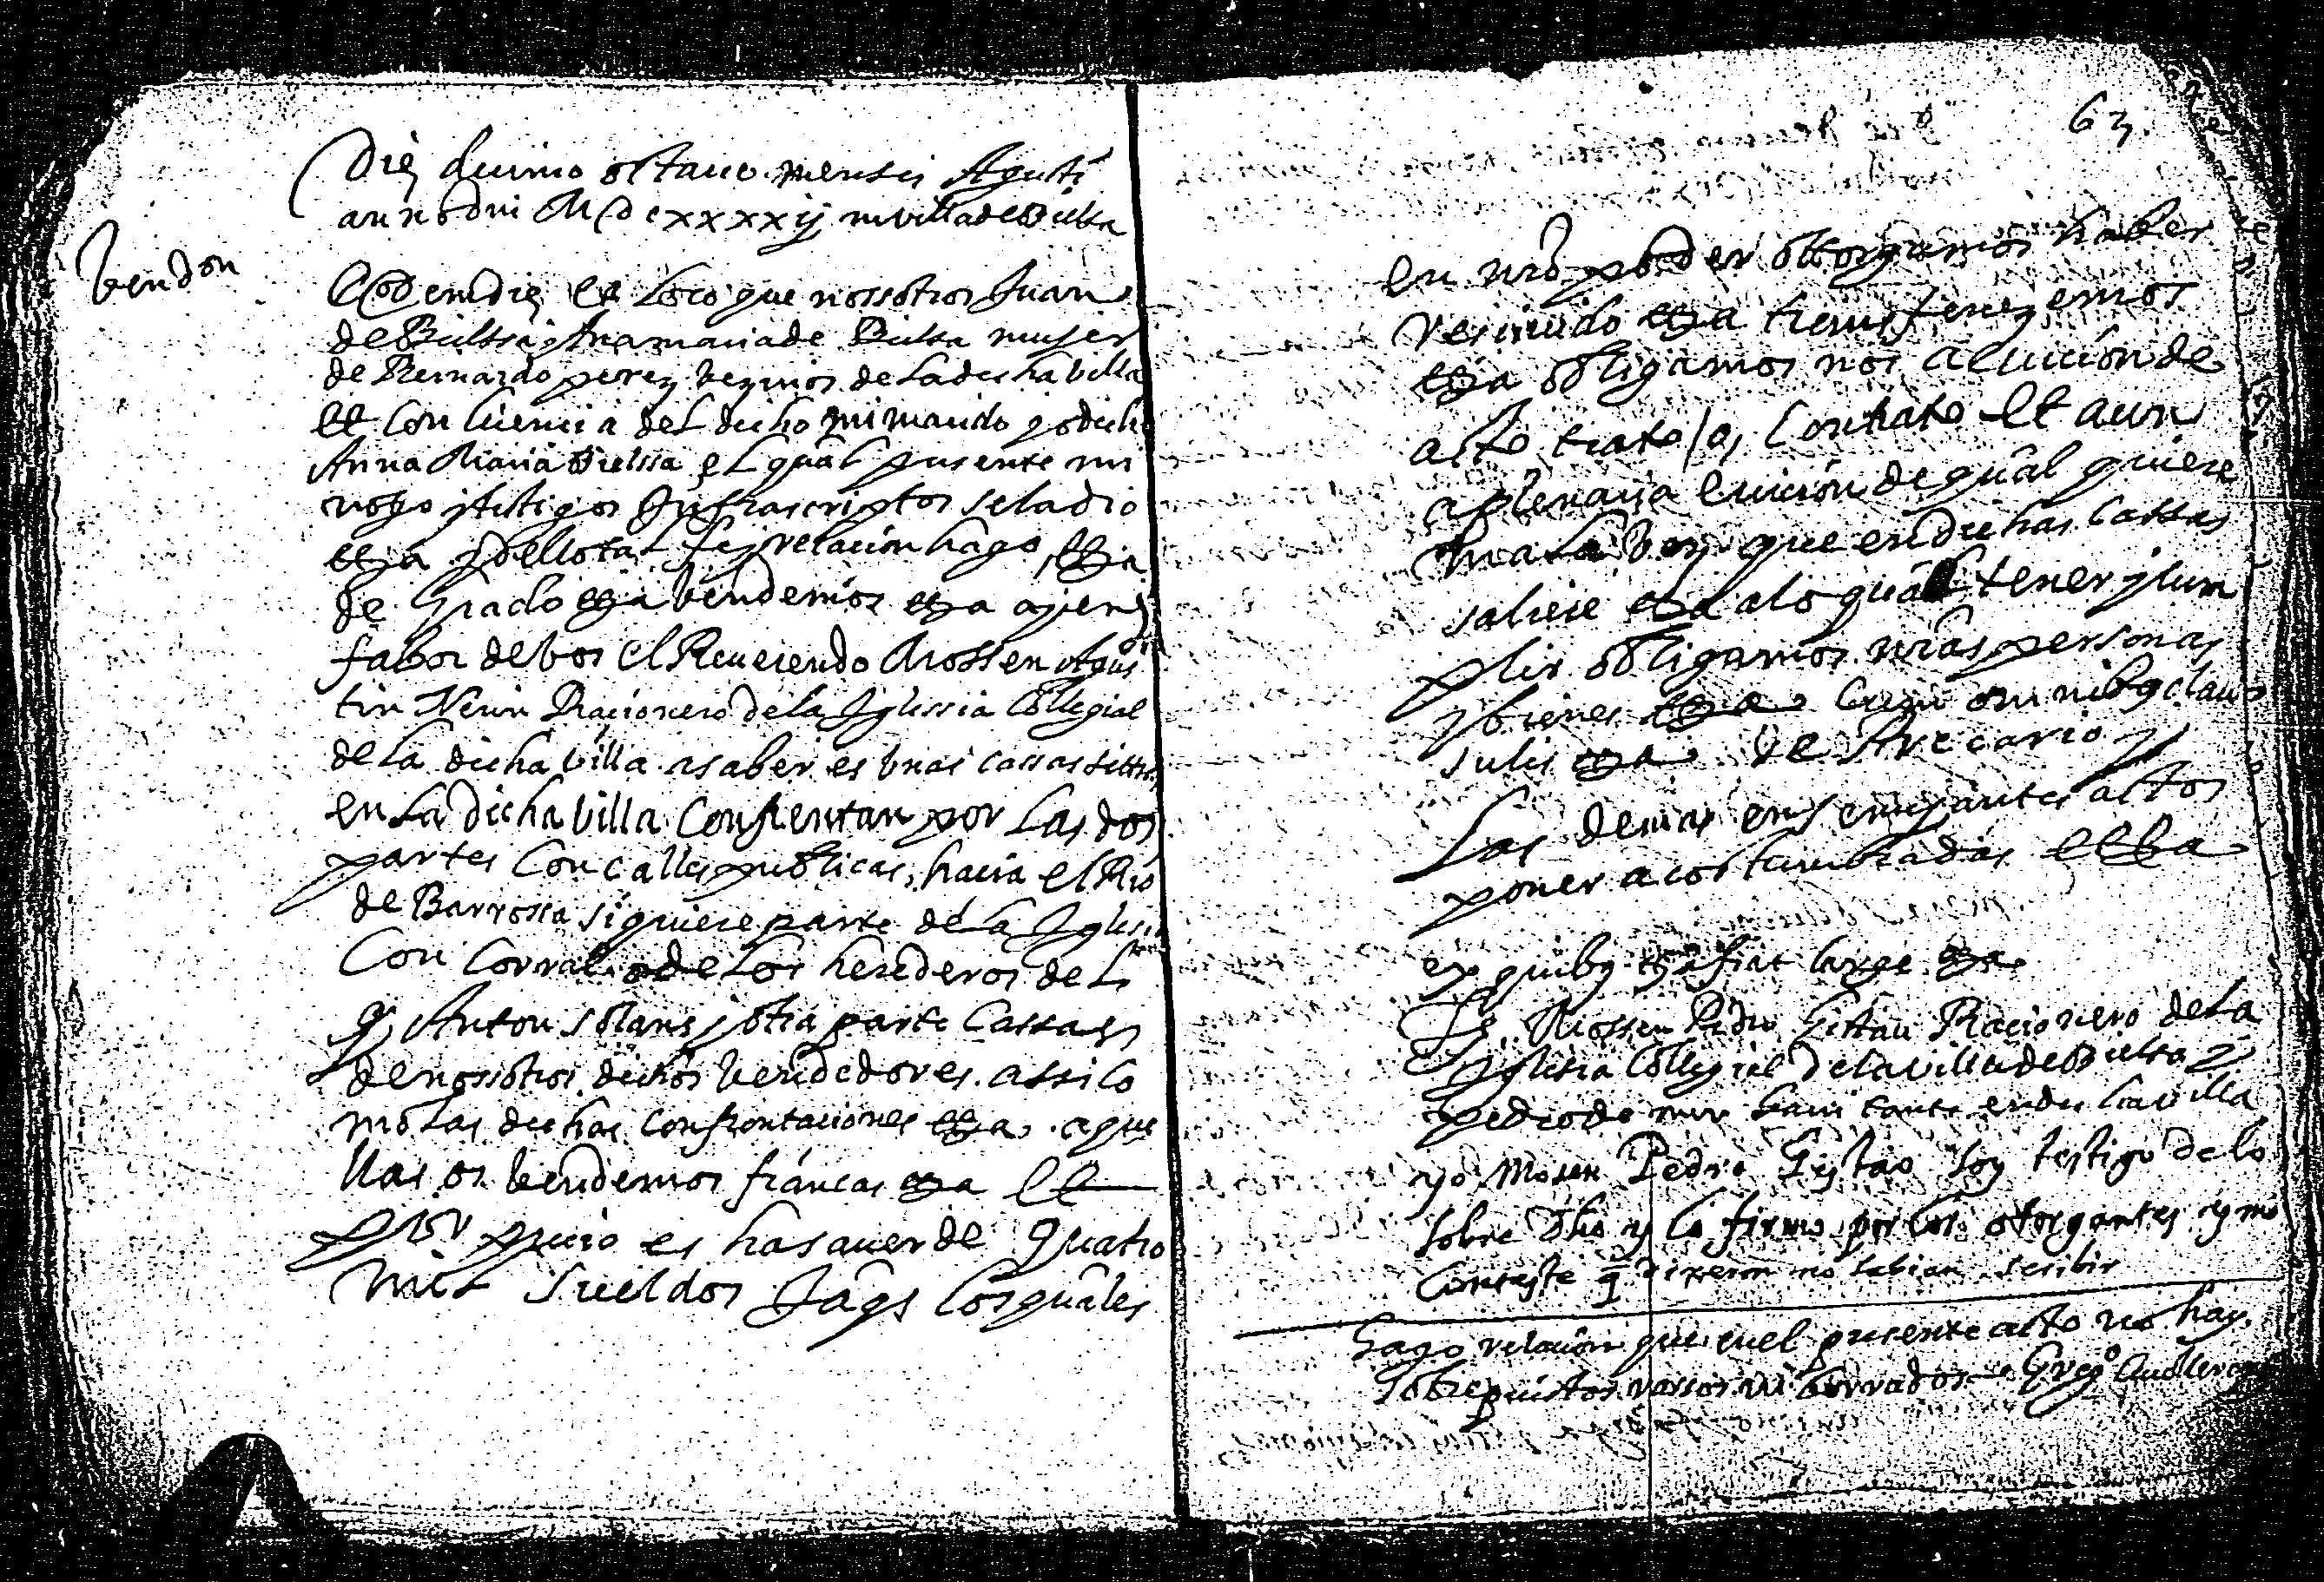 Die decimo octavo mensis Agusti
anno dni MDcxxxxij in villa de Bielsa
Vendon
Eodem die et Loco que nossotros Juan
de Bielssa y Ana maria de Bielsa mujer
de Bernardo perez vezinos de la dicha villa
et con licencia del dicho mi marido yo dicha
Anna Maria Bielssa el qual presente mi
noto y testigos Infrascriptos se la dio
etza y de llo tal fe y relacion hago, etza
de Grado etza vendemos etza ajen
fabor de vos el Reverendo Mossen Agus
tin Nerin Racionero de la Iglessia Collegial
de la dicha villa asaber es unas cassas sittias
en La dicha villa Confrentan por Las dos
partes Con calles publicas, hacia el Rio
de Barrossa siquiere parte de la Iglesia
Con Corral de los herederos del
q Anton solans y otra parte Cassas
de nossotros dichos vendedores. assi co
mo las dichas confrontaciones etza. aque
llas os vendemos francas etza et
precio es hasaver de quatro
mil sueldos Jaqs Los quales
63
en nro poder ottorgamos haber
recivido etza transferezemos
etza obligamos nos a evicion de
acto trato /o/ Contrato et aun
a plenaria evicion de qual quiere
mala voz que en dichas cassas
saliere etza a lo qual tener y cum
plir obligamos nras personas
y bienes etza Cum omnibq clau
sulis etza de Precario y
Las demas en semejantes actos
poner acostumbradas etza
ex quibq etza fiat large etza
Ts Mossen Pedro Gistau Racionero de la
Iglesia Collegial de la villa de Bielsa y
Pedro de mur havitante en dicha villa
yo Mosen Pedro Gistao soy testigo de lo
sobre dho y lo firmo por los otorgantes y mi
conteste q dixeron no sabian scribir
Hago relacion que en el presente acto no hay
sobrepuestos rassos ni borrados Grego